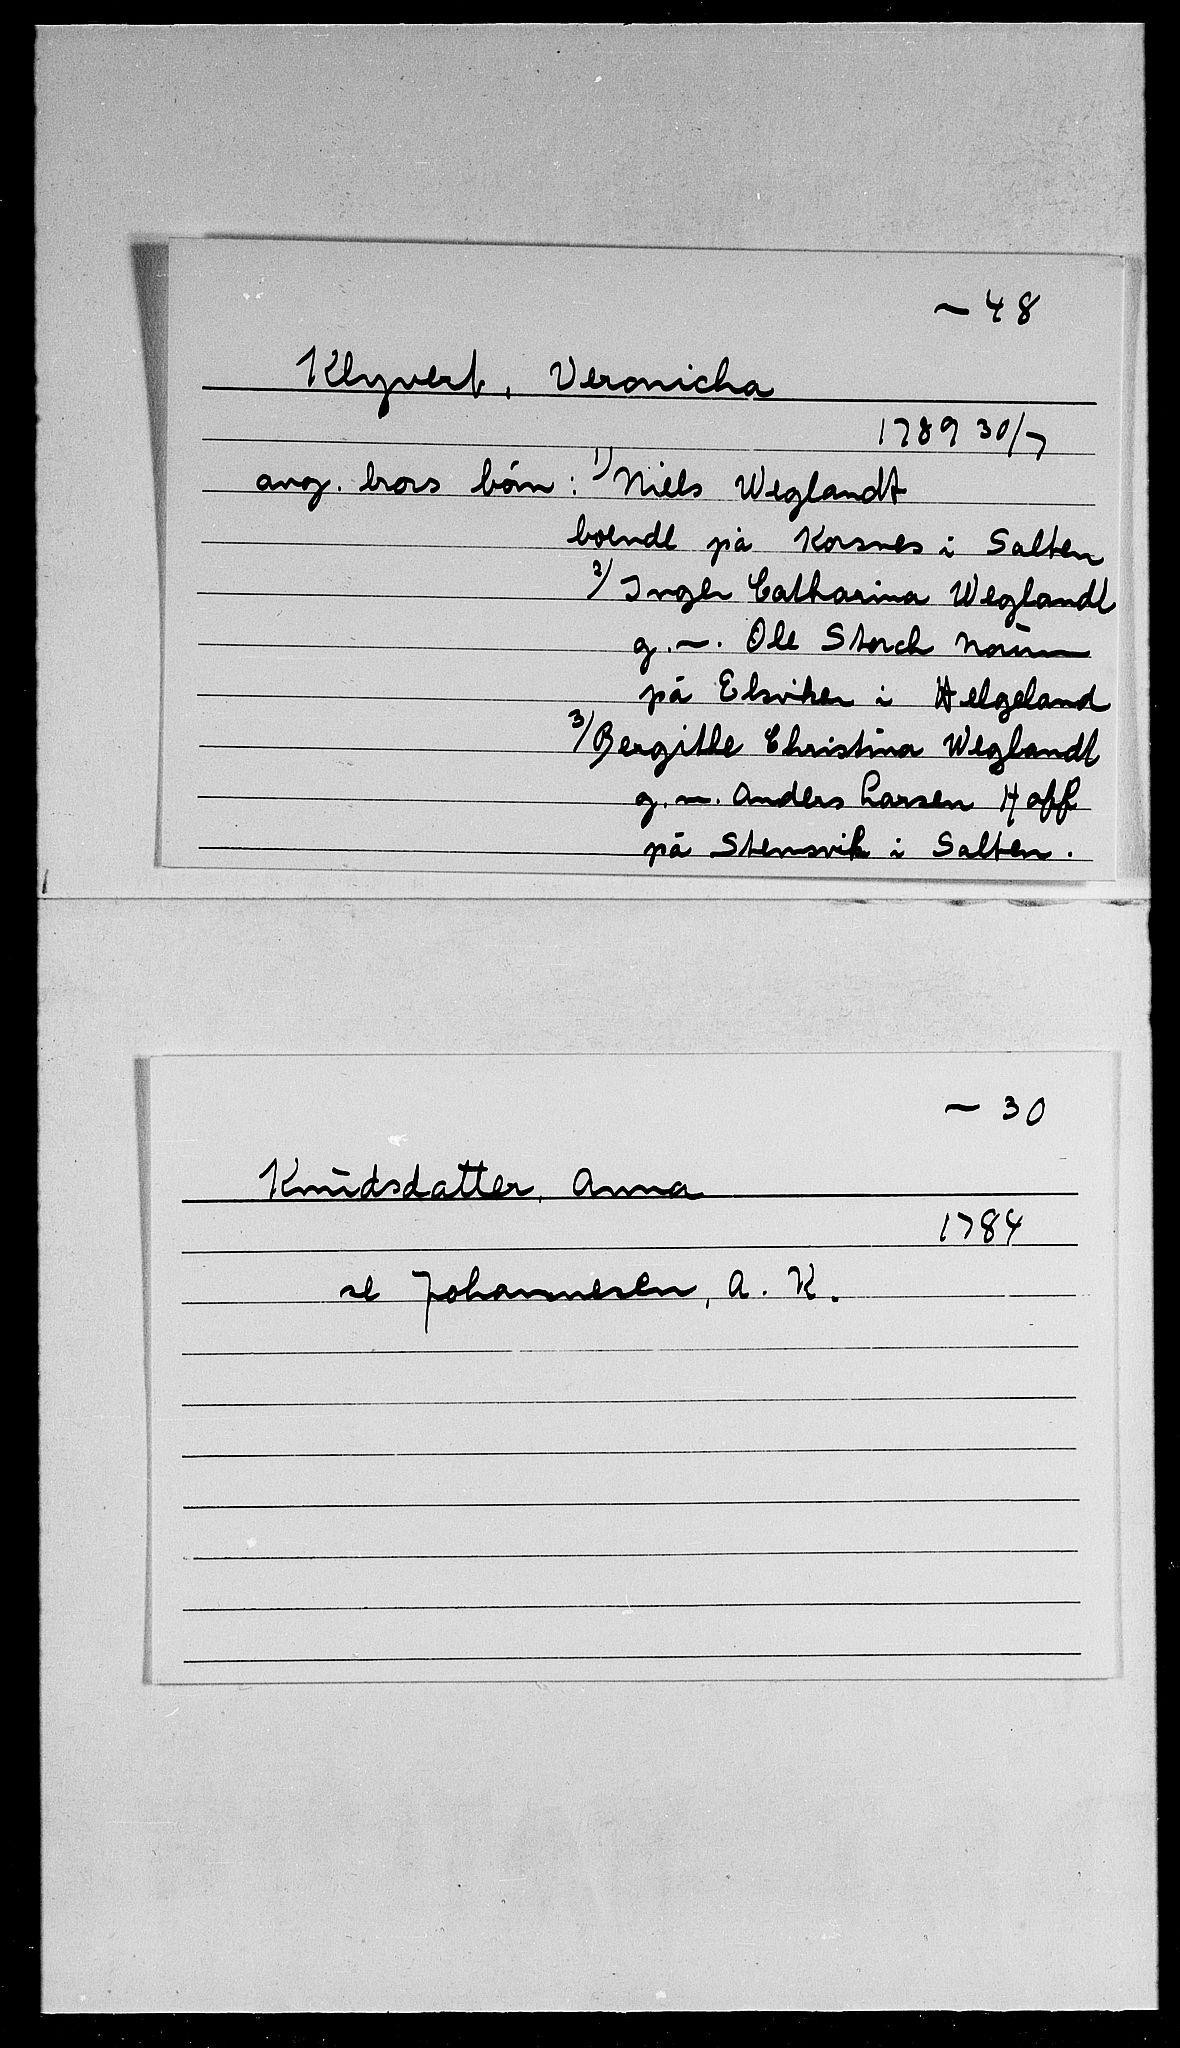 ~ 48
Klyvert, Veronicha
1789 30/7
avg. brors børn: 1) Niels Weglandt
boende på Korsnes i Salten
2/ Inger Catharina Weglandt
g. m. Ole Storch Noum
på Elsviken i Helgeland
3/ Bergitte Christina Weglandt
g. m. Anders Larsen Hoff
på Stensvik i Salten.
~ 30
Knudsdatter, Anna
1784
se Johannesen, A. K.